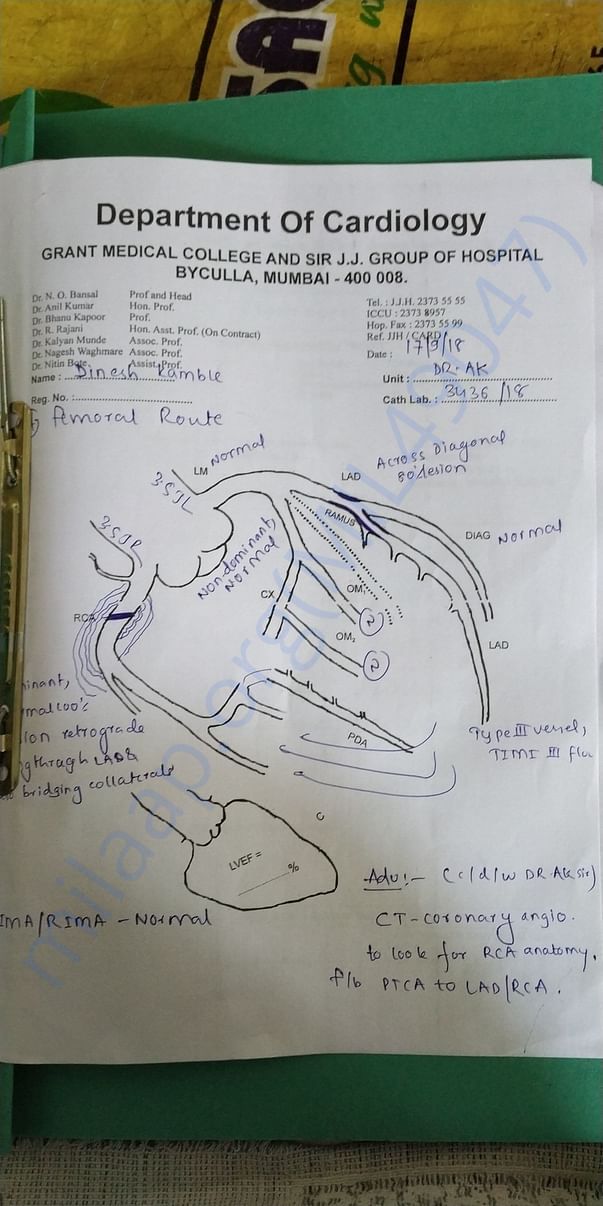 Department Of Cardiology
GRANT MEDICAL COLLEGE AND SIR J.J. GROUP OF HOSPITAL
BYCULLA, MUMBAI - 400 008.
Dr. N. O. Bansal Prof and Head
Dr. Anil Kumar Hon. Prof.
Dr. Bhanu Kapoor Prof.
Dr. R. Rajani Hon. Asst. Prof. (On Contract)
Dr. Kalyan Munde Assoc. Prof.
Dr. Nagesh Waghmare Assoc. Prof.
Dr. Nitin Bote Assist. Prof.
Tel. : J.J.H. 2373 55 55
ICCU : 2373 8957
Hop. Fax : 2373 55 99
Ref. JJH / CARD
Date : 17/9/18
Name : Dinesh Kamble
Unit : DR. AK
Reg. No. :
Cath Lab. : 3436/18
Femoral Route
LM Normal
3.5 JL
LAD
Across Diagonal
80% lesion
3.5 JR
RAMUS
DIAG Normal
Non-dominant,
Normal
CX
OM1
N
OM2
N
RCA
LAD
inant,
mal 100%
ion retrograde
g through LAD &
bridging collaterals
PDA
Type III vessel,
TIMI III flo
C
LVEF =
%
IMA/RIMA - Normal
Adv :- (c/d/w DR. AK sir)
CT-coronary angio.
to look for RCA anatomy.
f/b PTCA to LAD/RCA.